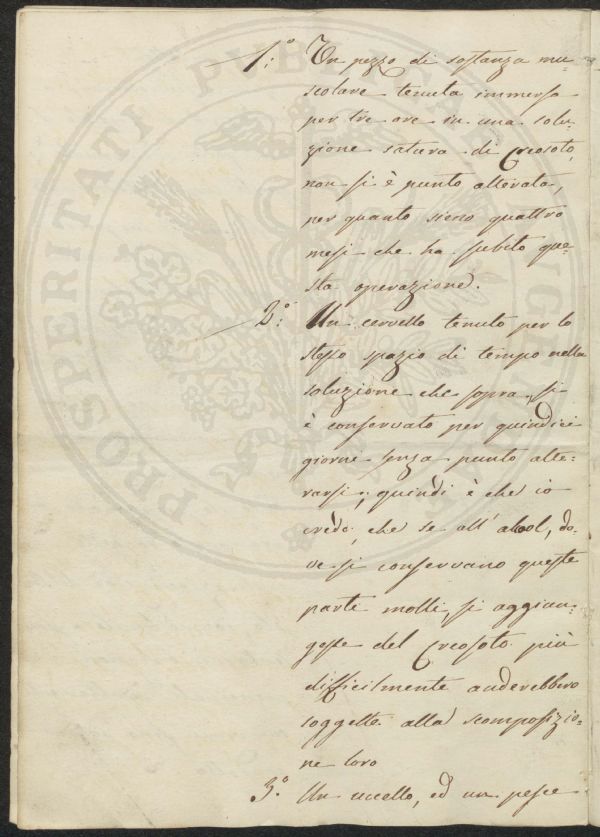 1.° Un pezzo di sostanza mu-
scolare tenuta immersa
per tre ore in una solu-
zione satura di Creosoto,
non si è punto alterata,
per quanto sieno quattro
mesi che ha subito que-
sta operazione.
2.° Un cervello tenuto per lo
stesso spazio di tempo nella
soluzione che sopra, si
è conservato per quindici
giorni senza punto alte-
rarsi; quindi è che io
credo, che se all' alcool, do-
ve si conservano queste
parti molli, si aggiun-
gesse del Creosoto più
difficilmente anderebbero
soggette alla scomposizio-
ne loro
3.° Un uccello, ed un pesce
PROSPERITATI PUBLICAE AUGENDAE